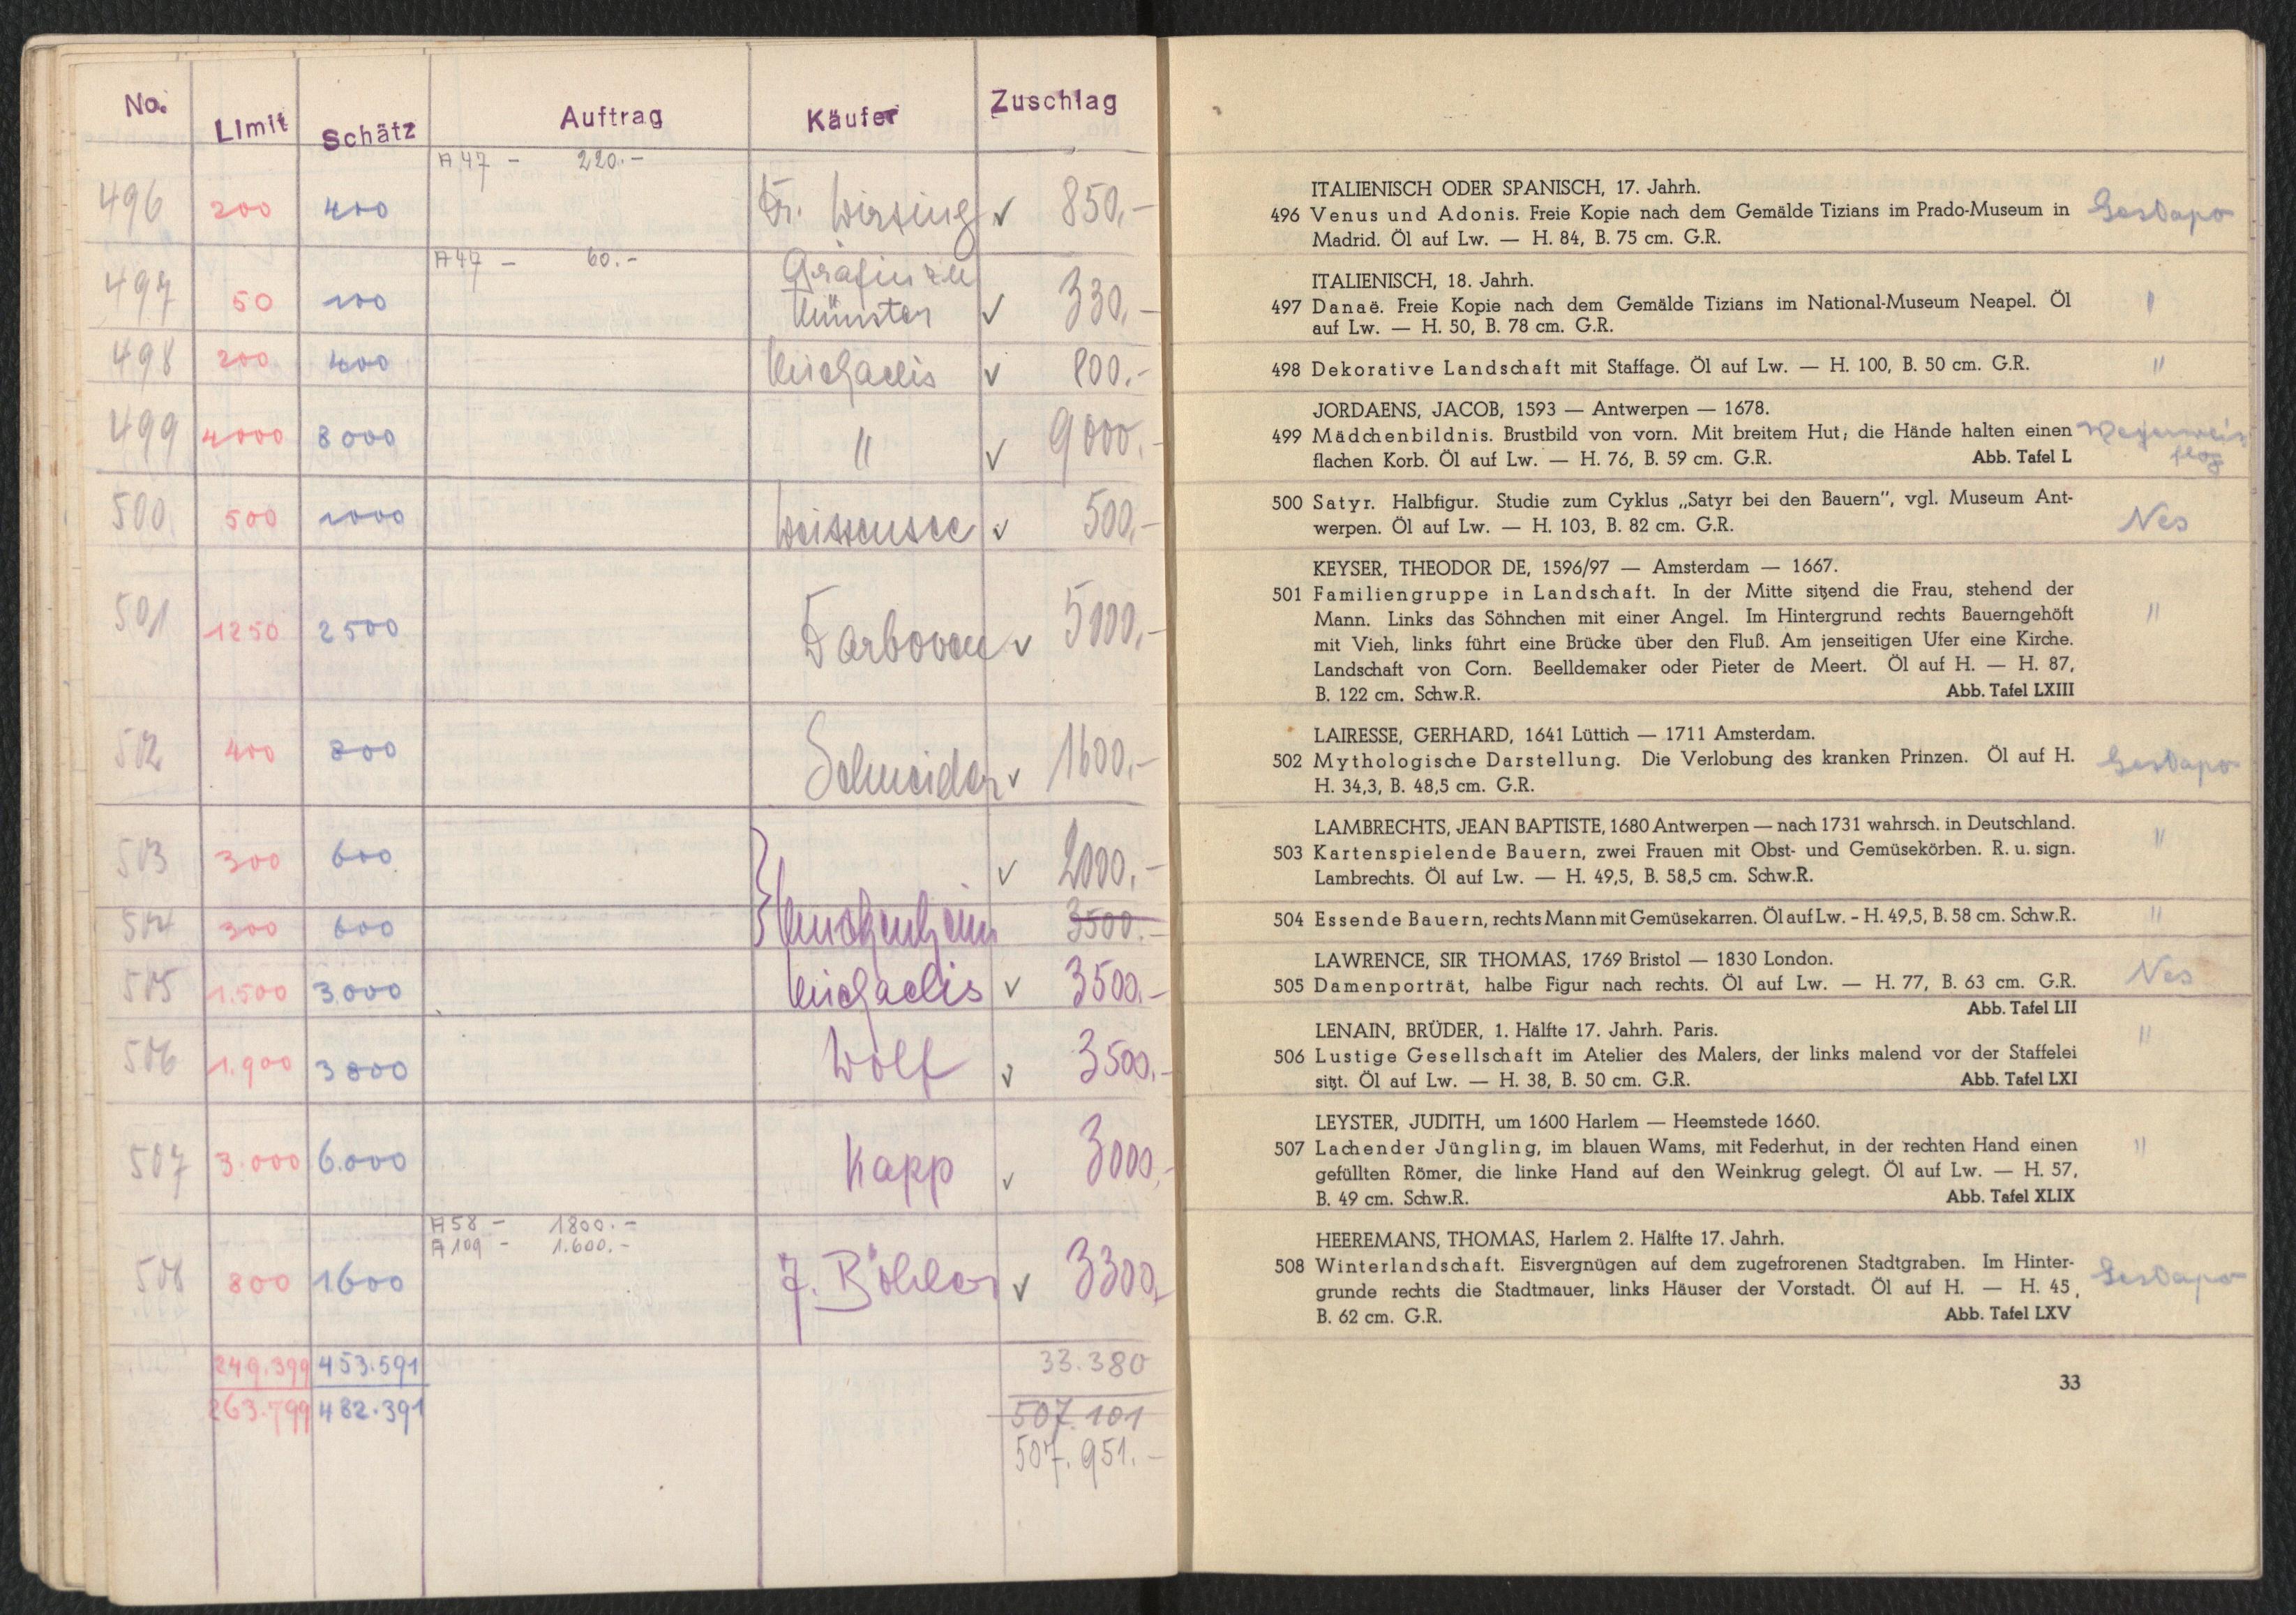 No. Limit Schätz Auftrag Käufer Zuschlag
A 47 - 220.-
496 200 400 Dr. Wirsing v 850,-
A 47 - 60.-
Gräfin zu
497 50 100 Münster v 330,-
498 200 400 Michaelis v 800.-
499 4000 8000 " v 9000.-
500 500 1000 Weissensee v 500,-
501 1250 2500 Darboven v 5000,-
502 400 800 Schneider v 1600,-
503 300 600 v 2000,-
504 300 600 3500.-
505 1.500 3.000 Michaelis v 3500.-
506 1.900 3800 Wolf v 3500.-
507 3.000 6.000 Kapp v 3000,-
A 58 - 1800.-
A 109 - 1.600.-
508 800 1600 J. Böhler v 3300,-
249.399 453.591 33.380
263.799 482.391 507.101
507.951.-
ITALIENISCH ODER SPANISCH, 17. Jahrh.
496 Venus und Adonis. Freie Kopie nach dem Gemälde Tizians im Prado-Museum in Gestapo
Madrid. Öl auf Lw. — H. 84, B. 75 cm. G.R.
ITALIENISCH, 18. Jahrh.
497 Danaë. Freie Kopie nach dem Gemälde Tizians im National-Museum Neapel. Öl "
auf Lw. — H. 50, B. 78 cm. G.R.
498 Dekorative Landschaft mit Staffage. Öl auf Lw. — H. 100, B. 50 cm. G.R. "
JORDAENS, JACOB, 1593 — Antwerpen — 1678.
499 Mädchenbildnis. Brustbild von vorn. Mit breitem Hut; die Hände halten einen
flachen Korb. Öl auf Lw. — H. 76, B. 59 cm. G.R. Abb. Tafel L
500 Satyr. Halbfigur. Studie zum Cyklus „Satyr bei den Bauern", vgl. Museum Ant-
werpen. Öl auf Lw. — H. 103, B. 82 cm. G.R. Nes
KEYSER, THEODOR DE, 1596/97 — Amsterdam — 1667.
501 Familiengruppe in Landschaft. In der Mitte sitzend die Frau, stehend der
Mann. Links das Söhnchen mit einer Angel. Im Hintergrund rechts Bauerngehöft "
mit Vieh, links führt eine Brücke über den Fluß. Am jenseitigen Ufer eine Kirche.
Landschaft von Corn. Beelldemaker oder Pieter de Meert. Öl auf H. — H. 87,
B. 122 cm. Schw.R. Abb. Tafel LXIII
LAIRESSE, GERHARD, 1641 Lüttich — 1711 Amsterdam.
502 Mythologische Darstellung. Die Verlobung des kranken Prinzen. Öl auf H. Gestapo
H. 34,3, B. 48,5 cm. G.R.
LAMBRECHTS, JEAN BAPTISTE, 1680 Antwerpen — nach 1731 wahrsch. in Deutschland.
503 Kartenspielende Bauern, zwei Frauen mit Obst- und Gemüsekörben. R. u. sign. "
Lambrechts. Öl auf Lw. — H. 49,5, B. 58,5 cm. Schw.R.
504 Essende Bauern, rechts Mann mit Gemüsekarren. Öl auf Lw. - H. 49,5, B. 58 cm. Schw.R. "
LAWRENCE, SIR THOMAS, 1769 Bristol — 1830 London.
505 Damenporträt, halbe Figur nach rechts. Öl auf Lw. — H. 77, B. 63 cm. G.R. Nes
Abb. Tafel LII
LENAIN, BRÜDER, 1. Hälfte 17. Jahrh. Paris. "
506 Lustige Gesellschaft im Atelier des Malers, der links malend vor der Staffelei
sitzt. Öl auf Lw. — H. 38, B. 50 cm. G.R. Abb. Tafel LXI
LEYSTER, JUDITH, um 1600 Harlem — Heemstede 1660.
507 Lachender Jüngling, im blauen Wams, mit Federhut, in der rechten Hand einen "
gefüllten Römer, die linke Hand auf den Weinkrug gelegt. Öl auf Lw. — H. 57,
B. 49 cm. Schw.R. Abb. Tafel XLIX
HEEREMANS, THOMAS, Harlem 2. Hälfte 17. Jahrh.
508 Winterlandschaft. Eisvergnügen auf dem zugefrorenen Stadtgraben. Im Hinter- Gestapo
grunde rechts die Stadtmauer, links Häuser der Vorstadt. Öl auf H. — H. 45,
B. 62 cm. G.R. Abb. Tafel LXV
33